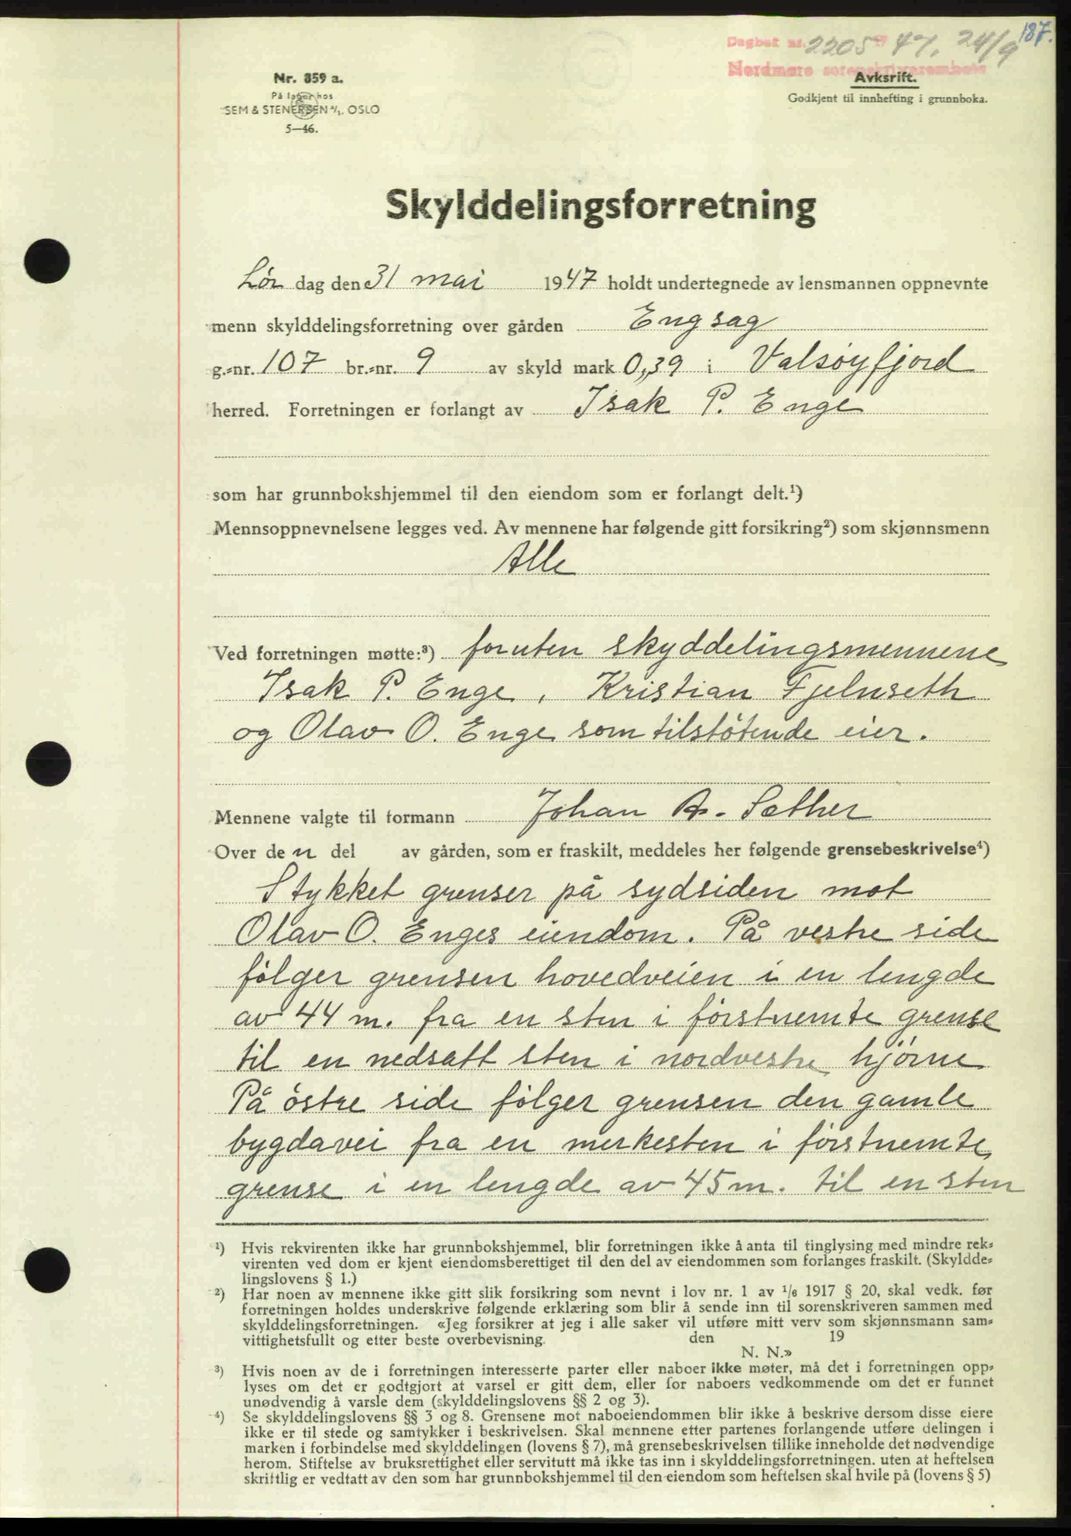 187.
Dagbok nr. 2205 - 47, 24/9
Nordmøre sorenskriverembete
Nr. 859 a.
På lager hos
SEM & STENERSEN A/S. OSLO
5—46.
Avksrift.
Godkjent til innhefting i grunnboka.
Skylddelingsforretning
Lør dag den 31 mai 1947 holdt undertegnede av lensmannen oppnevnte
menn skylddelingsforretning over gården Engsag
g.-nr. 107 br.-nr. 9 av skyld mark 0,39 i Valsøyfjord
herred. Forretningen er forlangt av Isak P. Enge
som har grunnbokshjemmel til den eiendom som er forlangt delt.¹)
Mennsoppnevnelsene legges ved. Av mennene har følgende gitt forsikring²) som skjønnsmenn
Alle
Ved forretningen møtte:³) foruten skyddelingsmennene
Isak P. Enge, Kristian Fjelnseth
og Olav O. Enge som tilstøtende eier.
Mennene valgte til formann Johan A. Sæther
Over den del av gården, som er fraskilt, meddeles her følgende grensebeskrivelse⁴)
Stykket grenser på sydsiden mot
Olav O. Enges eiendom. På vestre side
følger grensen hovedveien i en lengde
av 44 m. fra en sten i førstnemte grense
til en nedsatt sten i nordvestre hjørne
På østre side følger grensen den gamle
bygdavei fra en merkesten i førstnemte
grense i en lengde av 45 m. til en sten
¹) Hvis rekvirenten ikke har grunnbokshjemmel, blir forretningen ikke å anta til tinglysing med mindre rek-
virenten ved dom er kjent eiendomsberettiget til den del av eiendommen som forlanges fraskilt. (Skyldde-
lingslovens § 1.)
²) Har noen av mennene ikke gitt slik forsikring som nevnt i lov nr. 1 av 1/6 1917 § 20, skal vedk. før
forretningen holdes underskrive følgende erklæring som blir å sende inn til sorenskriveren sammen med
skylddelingsforretningen. «Jeg forsikrer at jeg i alle saker vil utføre mitt verv som skjønnsmann sam-
vittighetsfullt og etter beste overbevisning. den 19
N. N.»
³) Hvis noen av de i forretningen interesserte parter eller naboer ikke møter, må det i forretningen opp-
lyses om det er godtgjort at varsel er gitt dem, eller for naboers vedkommende om det er funnet
unødvendig å varsle dem (skylddelingslovens §§ 2 og 3).
⁴) Se skylddelingslovens §§ 3 og 8. Grensene mot naboeiendommen blir ikke å beskrive dersom disse eiere
ikke er til stede og samtykker i beskrivelsen. Skal mennene etter partenes forlangende utføre delingen i
marken i forbindelse med skylddelingen (lovens § 7), må grensebeskrivelsen tillike inneholde det nødvendige
herom. Stiftelse av bruksrettighet eller servitutt må ikke tas inn i skylddelingsforretningen. uten at heftelsen
skriftlig er vedtatt av den som har grunnbokshjemmel til den eiendom som heftelsen skal hvile på (lovens § 5)